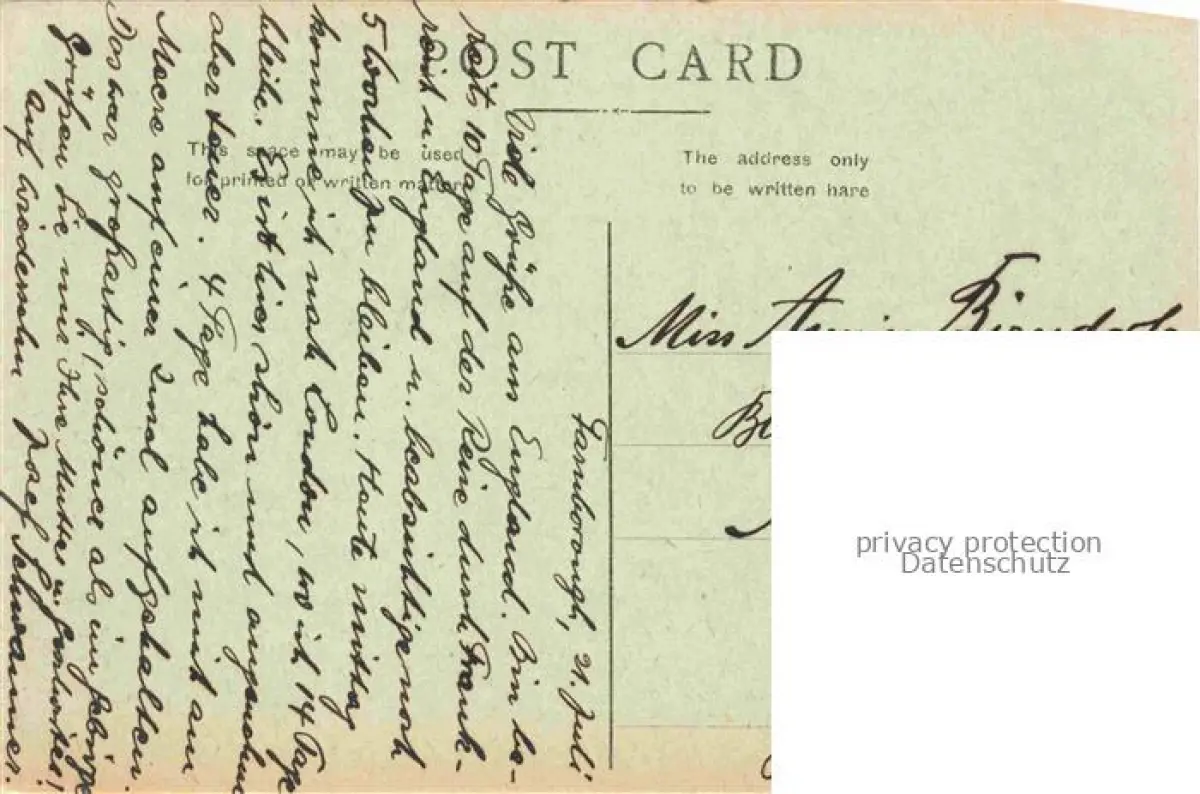 POST CARD
This space may be used
for printed or written matter
The address only
to be written hare
Farnborough, 21. Juli
Viele Grüße aus England. Bin be-
reits 10 Tage auf der Reise durch Frank-
reich u. England u. beabsichtige noch
5 Wochen zu bleiben. Heute mittag
komme ich nach London, wo ich 14 Tage
bleibe. Es ist hier schön und angenehm
aber teuer. 4 Tage habe ich mich am
Meere auf einer Insel aufgehalten.
Das war großartig, schöner als im Gebirge
Grüßen Sie mir Ihre Mutter u.
Auf Wiedersehn Josef
Miss
privacy protection
Datenschutz